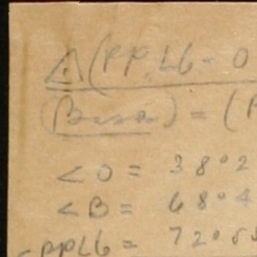 △(PPL6-0
(Base) = (
<0 = 38°2
<B = 68°4
<PPL6 = 72°5